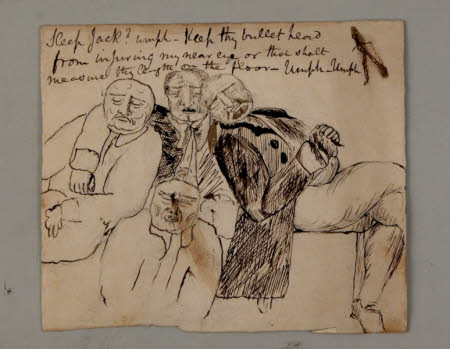 Sleep Jack? umph - Keep thy bullet head
from injuring my near eye or thou shalt
measure thy length on the floor - Umph - Umph